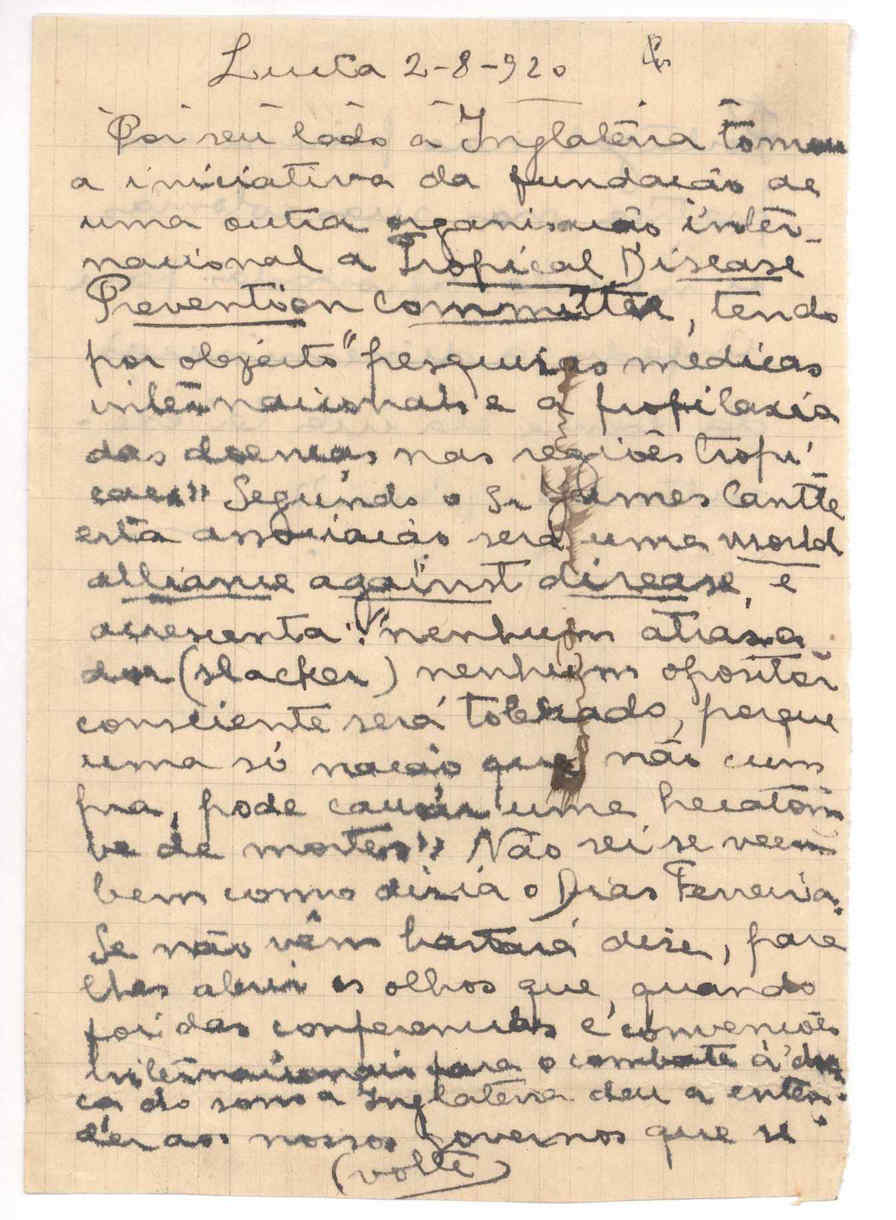 Lucta 2-8-920
Por seu lado a Inglaterra tomou
a iniciativa da fundação de
uma outra organisação inter-
nacional a Tropical Disease
Prevention Committee, tendo
por objecto "pesquisas médicas
internacionais e a profilaxia
das doenças nas regiões tropi-
caes" Segundo o Sr James Cantlie
esta associação será uma world
alliance against disease, e
acrescenta: "nenhum atrasa
dor (slacker) nenhum opositor
consciente será tolerado, porque
uma só nação que não cum
pra, pode causar uma hecatom
be de mortes" Não sei se veem
bem como dizia o Dias Ferreira.
Se não vêm bastará dizer, para
lhes abrir os olhos que, quando
foi das conferencias e convenções
internacionais para o combate á doen
ça do sono a Inglaterra deu a enten-
der aos nossos governos que se
(volte)